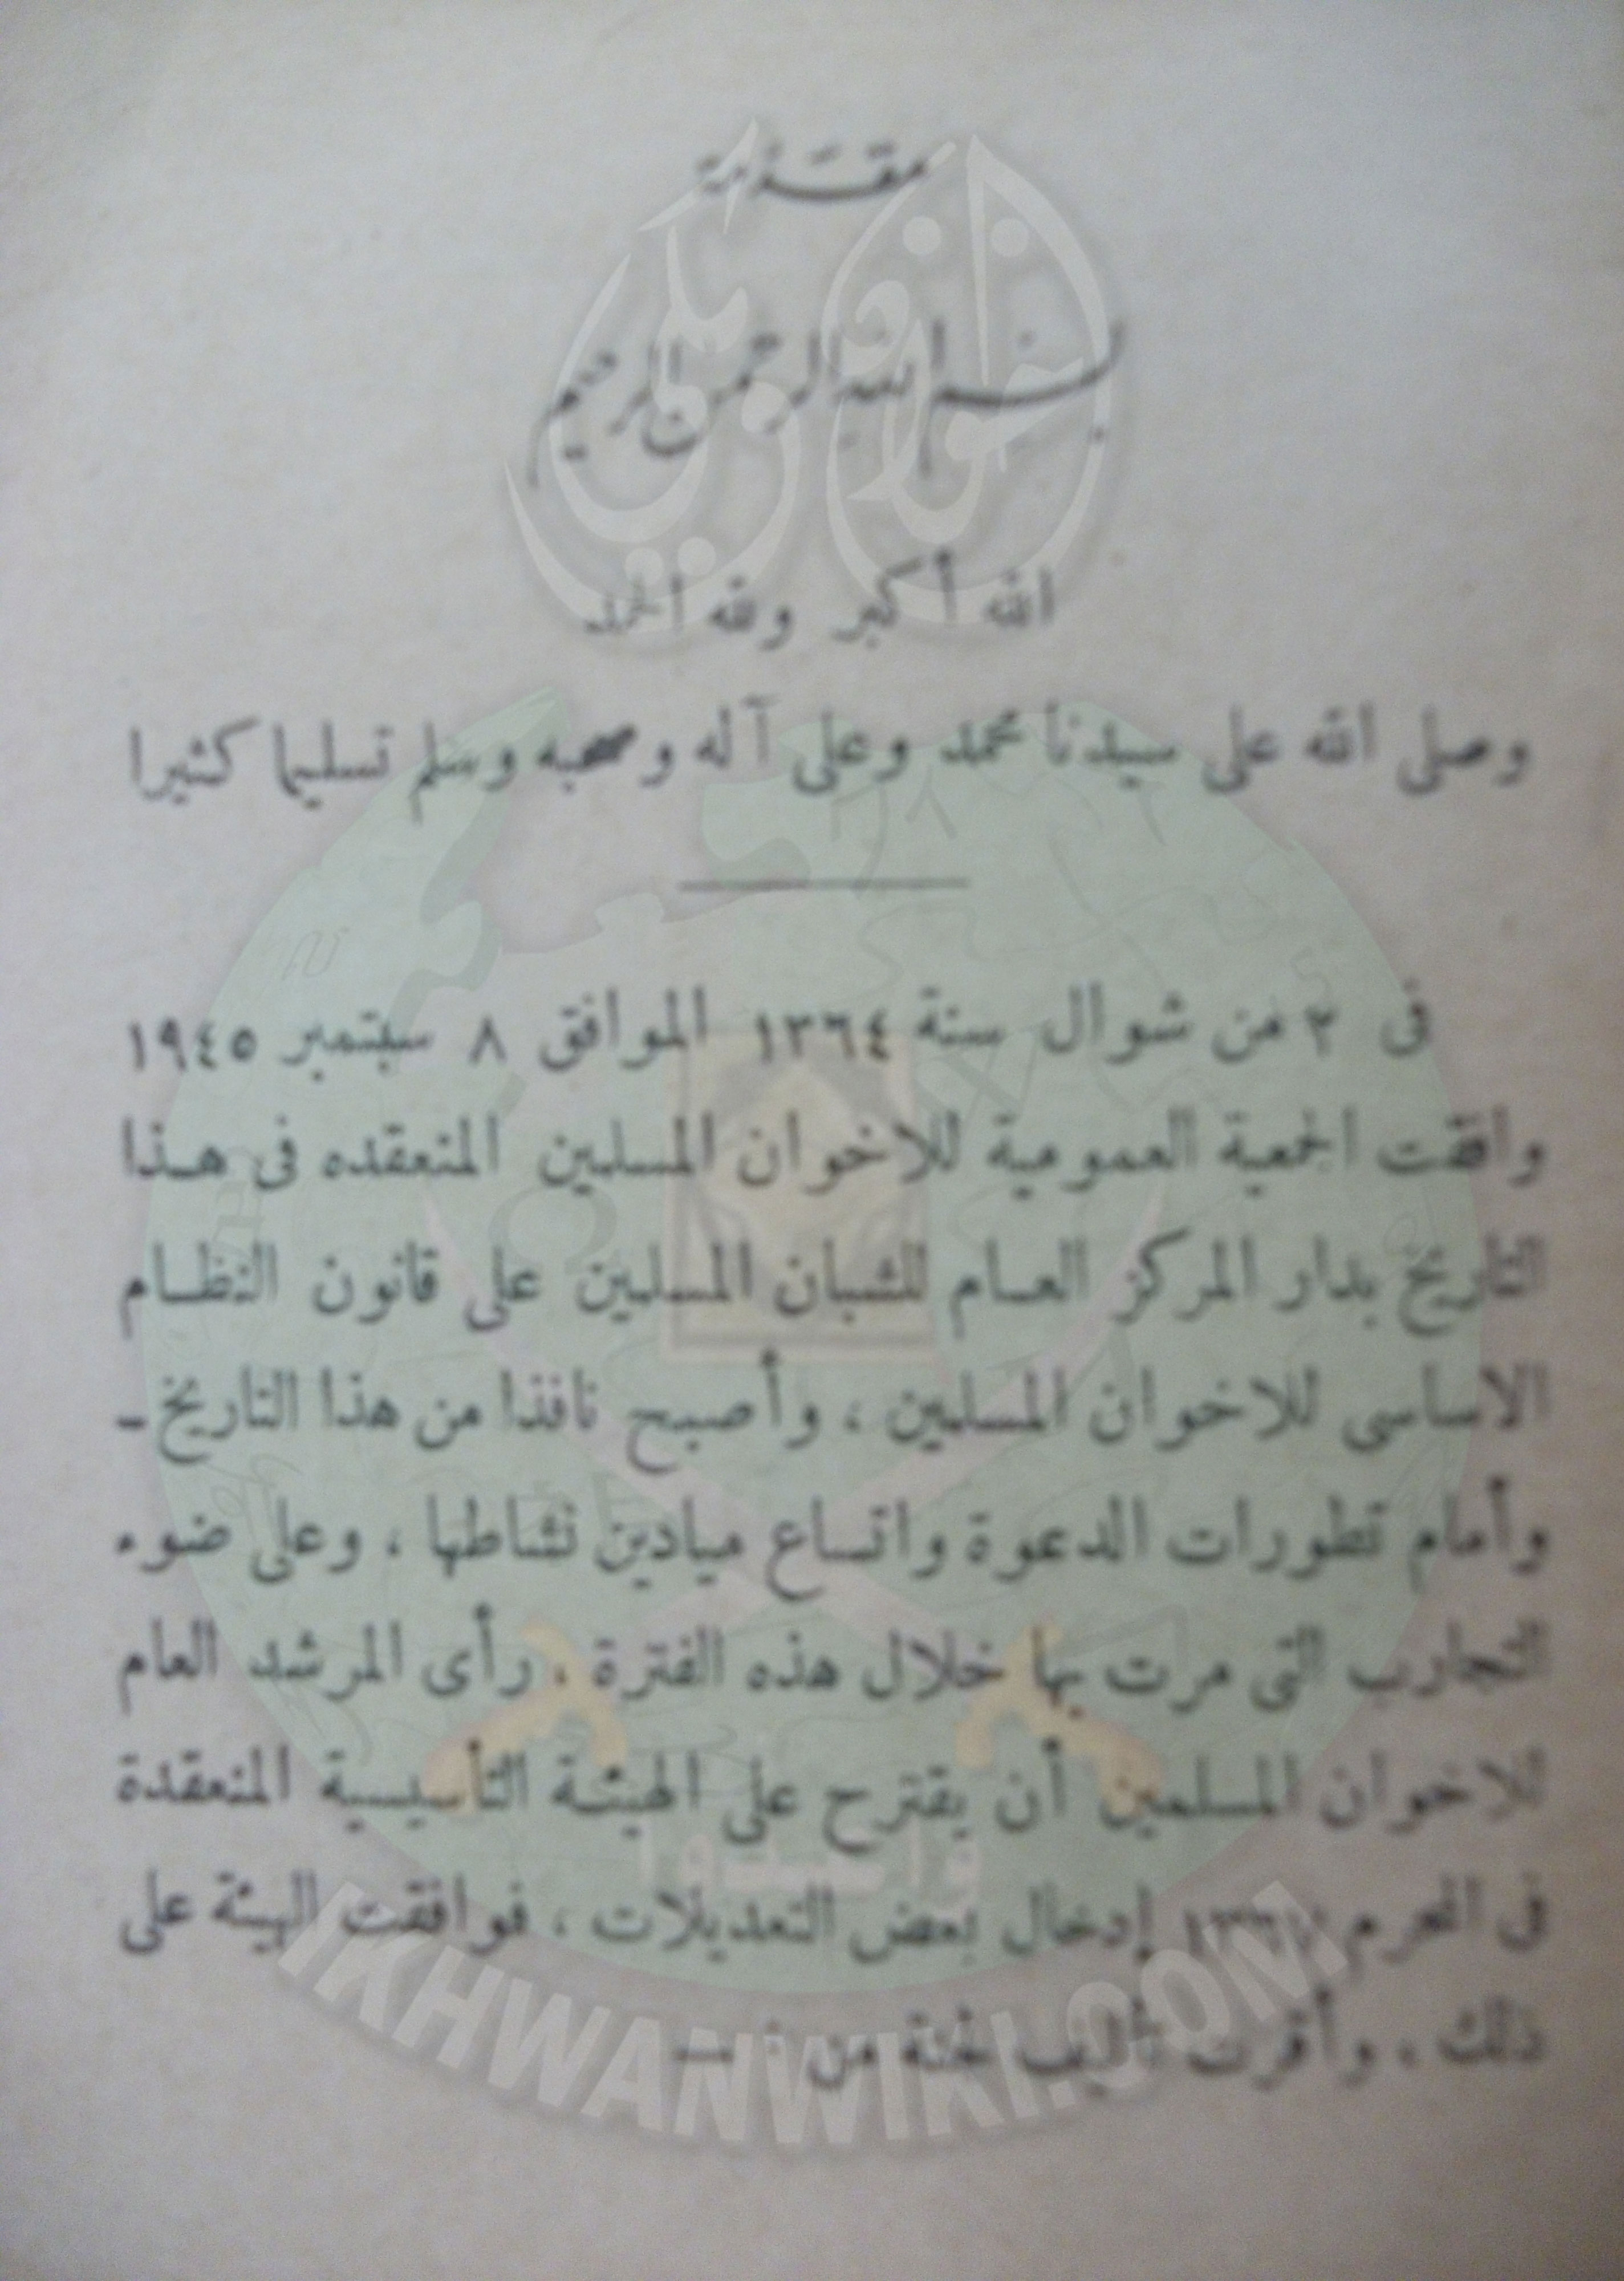 مقدمة
بسم الله الرحمن الرحيم
الله أكبر ولله الحمد
وصلى الله على سيدنا محمد وعلى آله وصحبه وسلم تسليما كثيرا
فى ٢ من شوال سنة ١٣٦٤ الموافق ٨ سبتمبر ١٩٤٥
وافقت الجمعية العمومية للاخوان المسلمين المنعقده فى هذا
التاريخ بدار المركز العام للشبان المسلمين على قانون النظام
الاساسى للاخوان المسلمين ، وأصبح نافذا من هذا التاريخ -
وأمام تطورات الدعوة واتساع ميادين نشاطها ، وعلى ضوء
التجارب التى مرت بها خلال هذه الفترة ، رأى المرشد العام
للاخوان المسلمين أن يقترح على الهيئة التأسيسية المنعقدة
فى المحرم إدخال بعض التعديلات ، فوافقت الهيئة على
ذلك ، وأقرت تأليف لجنة من : —
إخوان ويكي
وأعدوا
IKHWANWIKI.COM